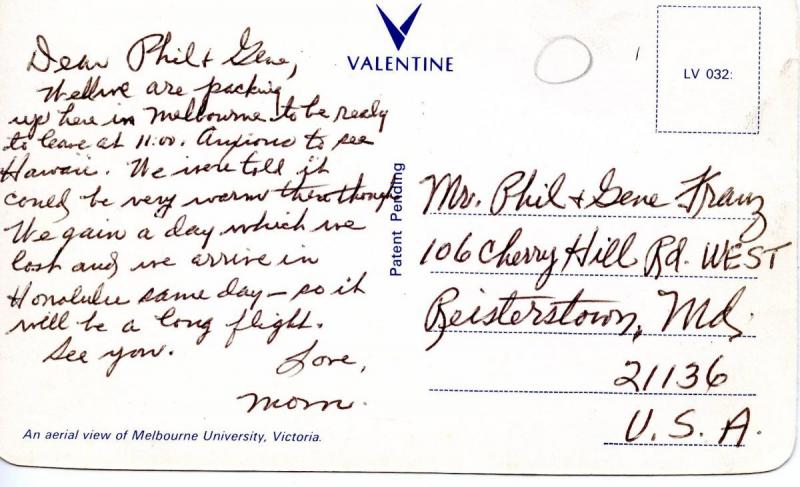 VALENTINE
LV 032:
Dear Phil & Gene,
Well we are packing
up here in Melbourne to be ready
to leave at 11:00. Anxious to see
Hawaii. We were told it
could be very warm there though
We gain a day which we
lost and we arrive in
Honolulu same day - so it
will be a long flight.
See you.
Love,
Mom.
An aerial view of Melbourne University, Victoria.
Patent Pending
Mr. Phil & Gene Franz
106 Cherry Hill Rd. WEST
Reisterstown, Md.
21136
U.S.A.